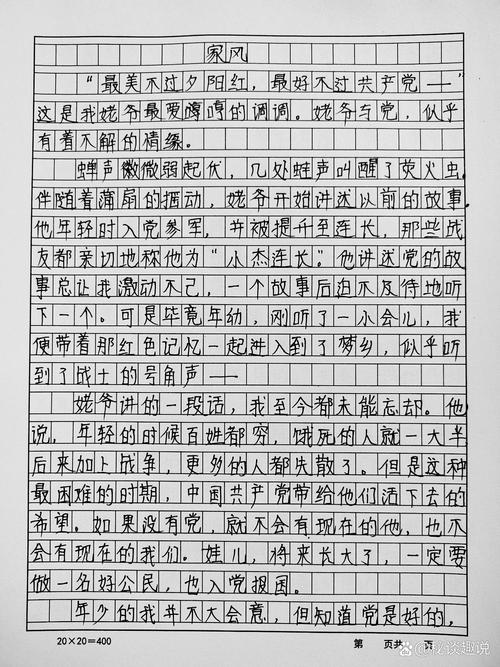 家风
“最美不过夕阳红，最好不过共产党——”
这是我姥爷最爱哼哼的调调。姥爷与党，似乎
有着不解的情缘。
蝉声微微弱起伏，几处蛙声叫醒了荧火虫。
伴随着蒲扇的摇动，姥爷开始讲述以前的故事。
他年轻时入党参军，并被提升至连长，那些战
友都亲切地称他为“小杰连长。”他讲述党的故
事总让我激动不己，一个故事后迫不及待地听
下一个。可是毕竟年幼，刚听了一小会儿，我
便带着那红色记忆一起进入到了梦乡，似乎听
到了战士的号角声——
姥爷讲的一段话，我至今都未能忘却。他
说，年轻的时候百姓都穷，饿死的人就一大半
后来加上战争，更多的人都失散了。但是这种
最困难的时期，中国共产党带给他们活下去的
希望。如果没有党，就不会有现在的他，也不
会有现在的我们。娃儿，将来长大了，一定要
做一名好公民，也入党报国。
年少的我并不大会意，但知道党是好的，
20×20=400 第 页共 页
@秘谈趣说